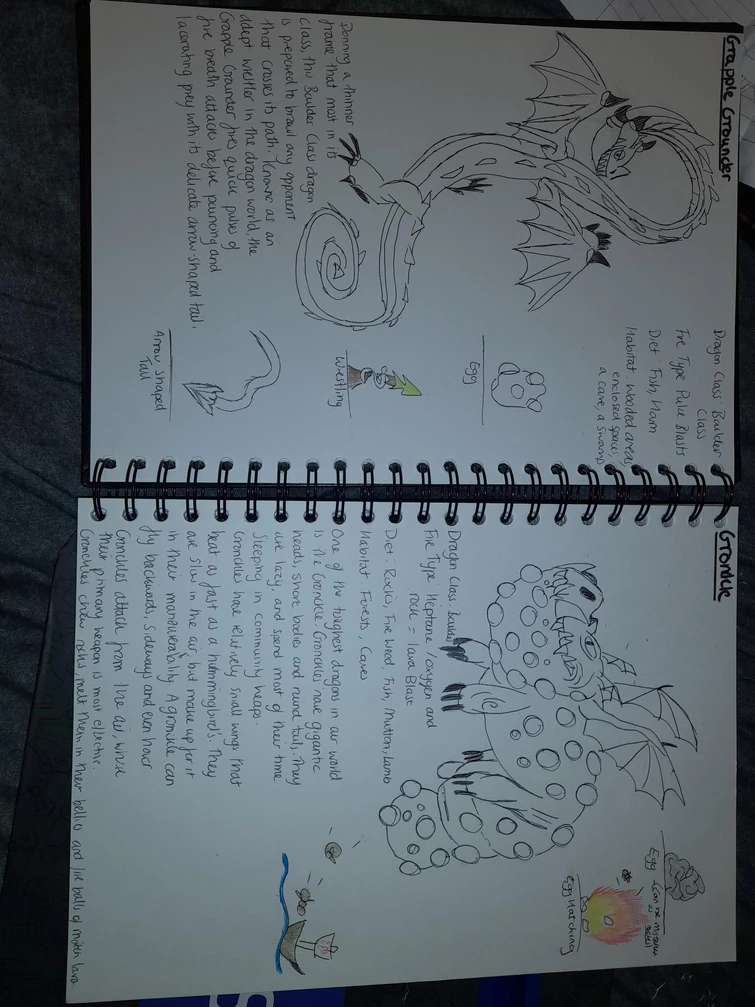 Grapple Grounder
Dragon Class: Boulder
Class
Fire Type Pulse Blasts
Diet Fish, Ham
Habitat Wooded areas,
enclosed spaces,
a cave, a swamp
Egg
Wrestling
Arrow Shaped
Tail
Donning a thinner
frame that most in its
class, this Boulder Class dragon
is prepared to brawl any opponent
that crosses its path. Known as an
adept wrestler in the dragon world, the
Grapple Grounder fires quick pulses of
fire breath attacks before pouncing and
lacerating prey with its delicate arrow-shaped tail.
Gronkle
Egg (Can be mistaken
as rocks)
Egg Hatching
Dragon Class: Boulder
Fire Type Heptane/oxygen and
rock = lava Blast
Diet: Rocks, Fire Wood Fish, Mutton, Lamb
Habitat Forests, Caves
One of the toughest dragons in our world
is the Gronkle. Gronckles have gigantic
heads, short bodies and round tails, They
are lazy, and spend most of their time
Sleeping in community heaps.
Gronkles have relatively small wings that
beat as fast as a hummingbirds. They
are slow in the air, but make up for it
in their maneuverability A gronkle can
fly backwards, sideways and even hover
Gronckles attack from the air, where
their primary weapon is most effective.
Gronckles chew rocks, melt them in their bellies and fire balls of molten lava